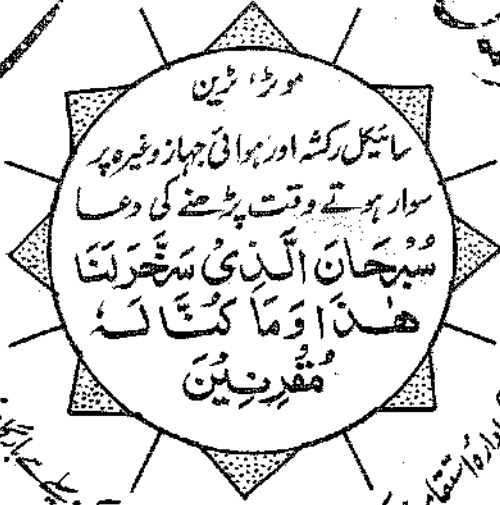 موٹر، ٹرین
سائیکل رکشہ اور ہوائی جہاز وغیرہ پر
سوار ہوتے وقت پڑھنے کی دعا
سُبْحَانَ الَّذِیْ سَخَّرَ لَنَا
ھٰذَا وَمَا كُنَّا لَهٗ
مُقْرِنِیْنَ